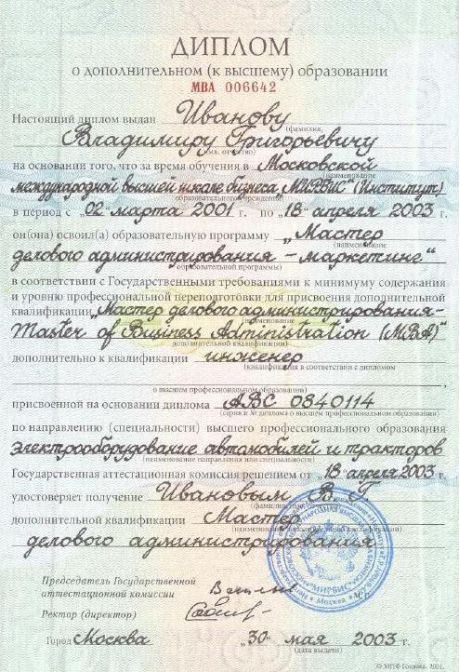 ДИПЛОМ
о дополнительном (к высшему) образовании
МВА 006642
Настоящий диплом выдан Иванову
(фамилия,
Владимиру Григорьевичу
имя, отчество)
на основании того, что за время обучения в Московской
(наименование
международной высшей школе бизнеса „МИРБИС“ (Институт)
образовательного учреждения)
в период с „02“ марта 2001 г. по „18“ апреля 2003 г.
он(она) освоил(а) образовательную программу „Мастер
(наименование
делового администрирования – маркетинг“
образовательной программы)
в соответствии с Государственными требованиями к минимуму содержания
и уровню профессиональной переподготовки для присвоения дополнительной
квалификации „Мастер делового администрирования-
Master of Business Administration (MBA)“
дополнительной квалификации)
дополнительно к квалификации инженер
(квалификация в соответствии с дипломом
о высшем профессиональном образовании)
присвоенной на основании диплома АВС 0840114
(серия и № диплома о высшем профессиональном образовании)
по направлению (специальности) высшего профессионального образования
электрооборудование автомобилей и тракторов
(наименование направления или специальности)
Государственная аттестационная комиссия решением от „18“ апреля 2003 г.
удостоверяет получение Ивановым В. Г.
дополнительной квалификации Мастер
делового администрирования
Председатель Государственной
аттестационной комиссии
Ректор (директор)
МИРБИС
Москва
Город Москва „30“ мая 2003 г.
(дата выдачи)